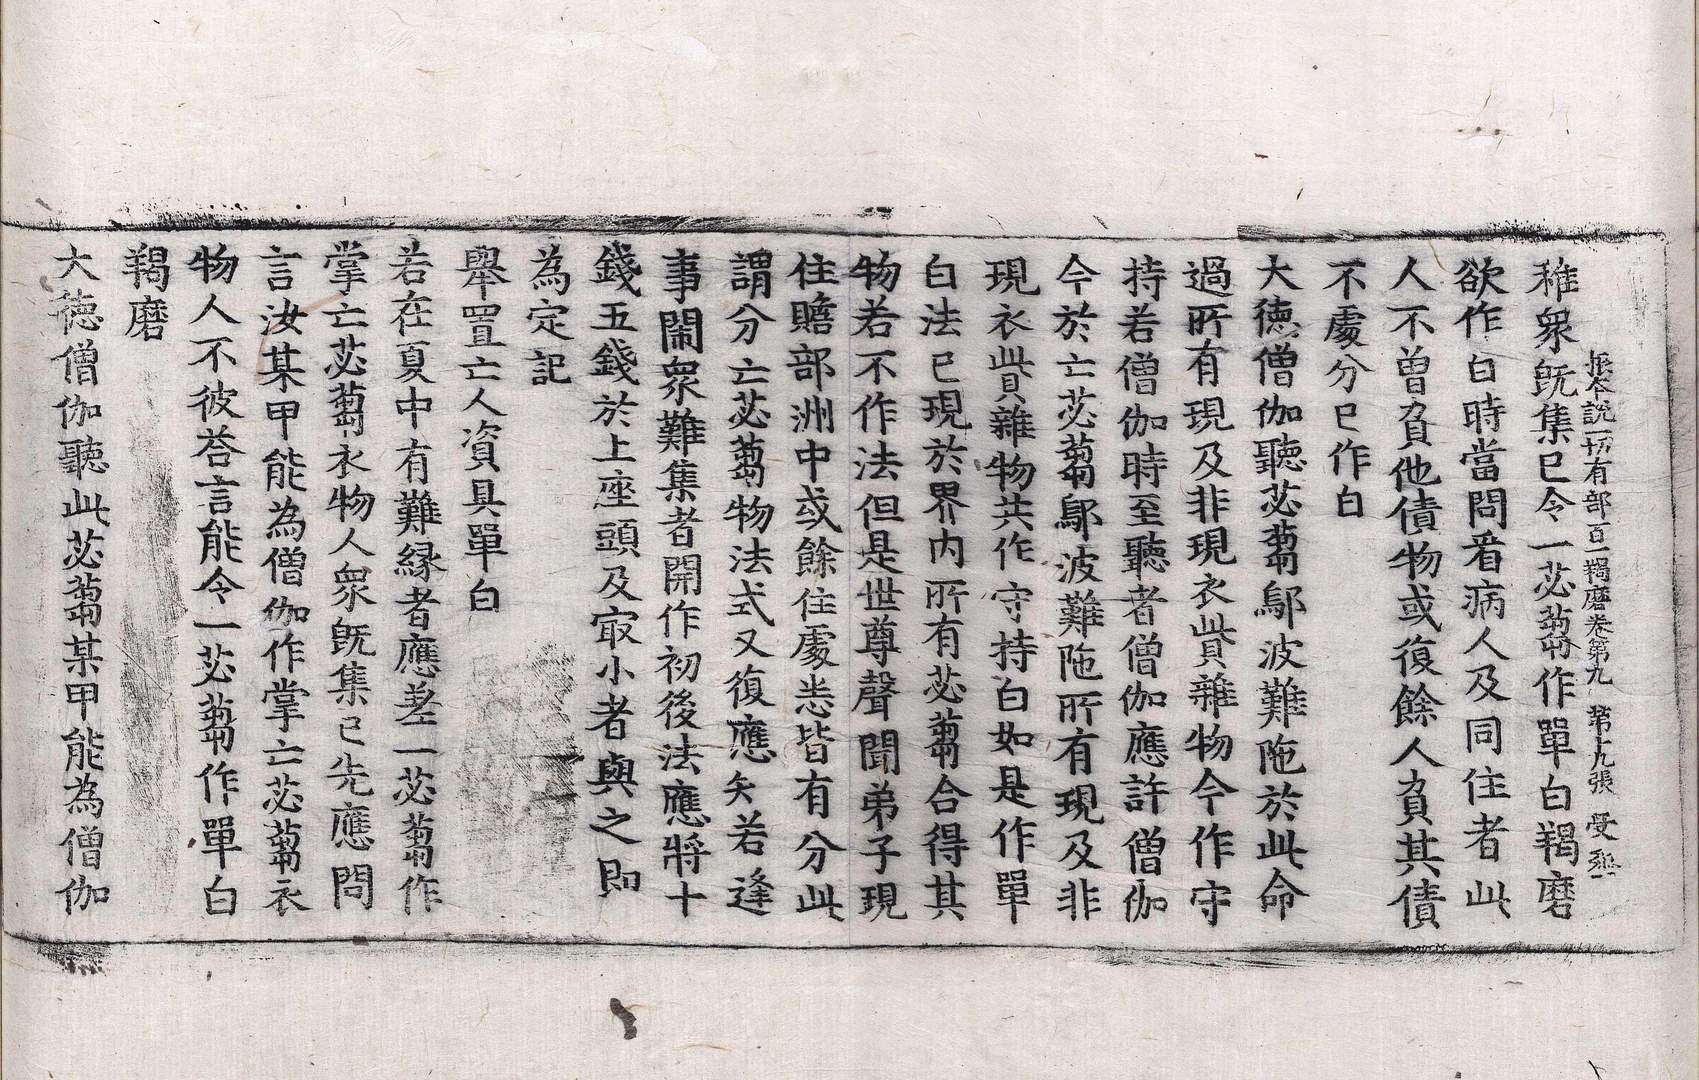 根本說一切有部百一羯磨卷第九 第十九張 受
稚衆旣集已令一苾蒭作單白羯磨
欲作白時當問看病人及同住者此
人不曾負他債物或復餘人負其債
不處分已作白
大德僧伽聽苾蒭鄔波難陁於此命
過所有現及非現衣貲雜物今作守
持若僧伽時至聽者僧伽應許僧伽
今於亡苾蒭鄔波難陁所有現及非
現衣貲雜物共作守持白如是作單
白法已現於界內所有苾蒭合得其
物若不作法但是世尊聲聞弟子現
住贍部洲中或餘住處悉皆有分此
謂分亡苾蒭物法式又復應知若逢
事鬧衆難集者開作初後法應將十
錢五錢於上座頭及㝡小者與之即
為定記
舉置亡人資具單白
若在夏中有難緣者應差一苾蒭作
掌亡苾蒭衣物人衆旣集已先應問
言汝某甲能為僧伽作掌亡苾蒭衣
物人不彼荅言能令一苾蒭作單白
羯磨
大德僧伽聽此苾蒭某甲能為僧伽